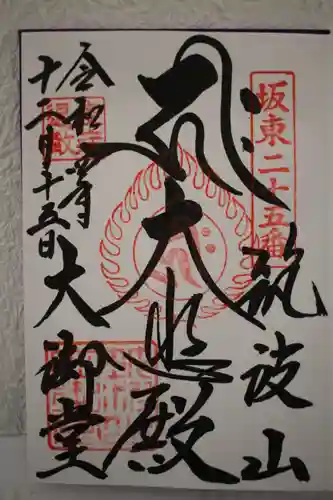 坂東二十五番
筑波山
大悲殿
大御堂
令和四年
十二月十三日